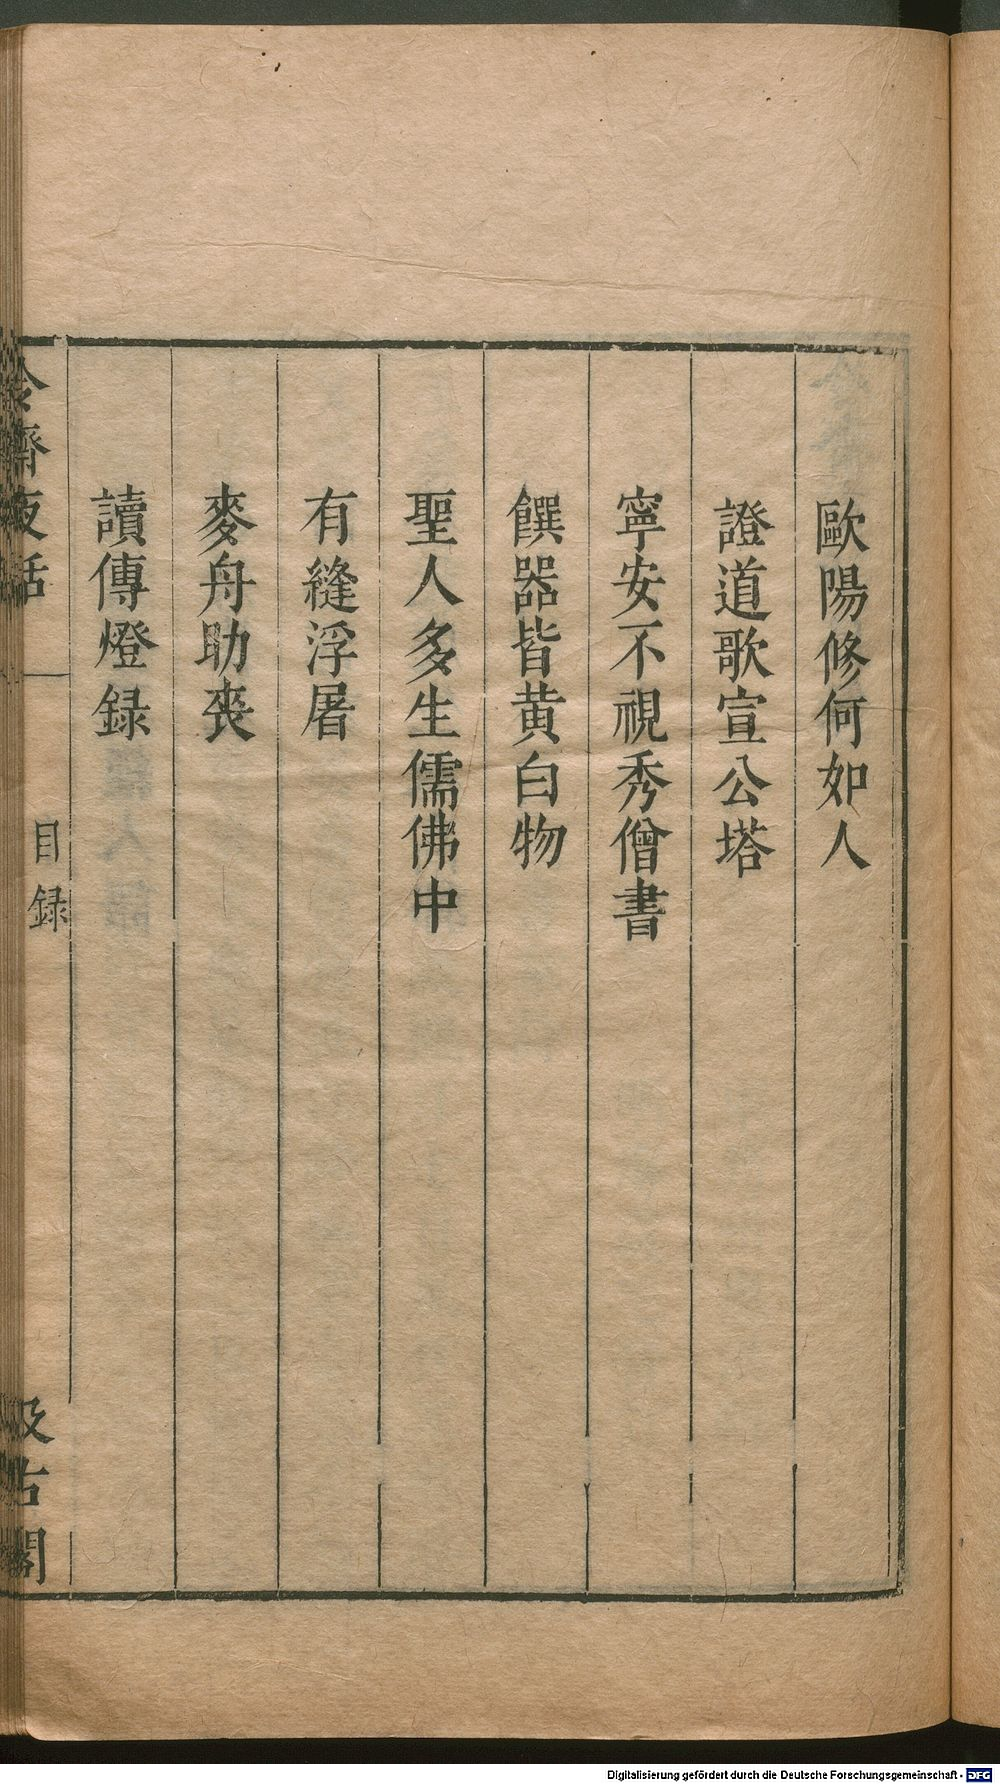 歐陽修何如人
證道歌宣公塔
寧安不視秀僧書
饌器皆黄白物
聖人多生儒佛中
有縫浮屠
麥舟助喪
讀傳燈録
冷齋夜話
目録
汲古閣
Digitalisierung gefördert durch die Deutsche Forschungsgemeinschaft - DFG